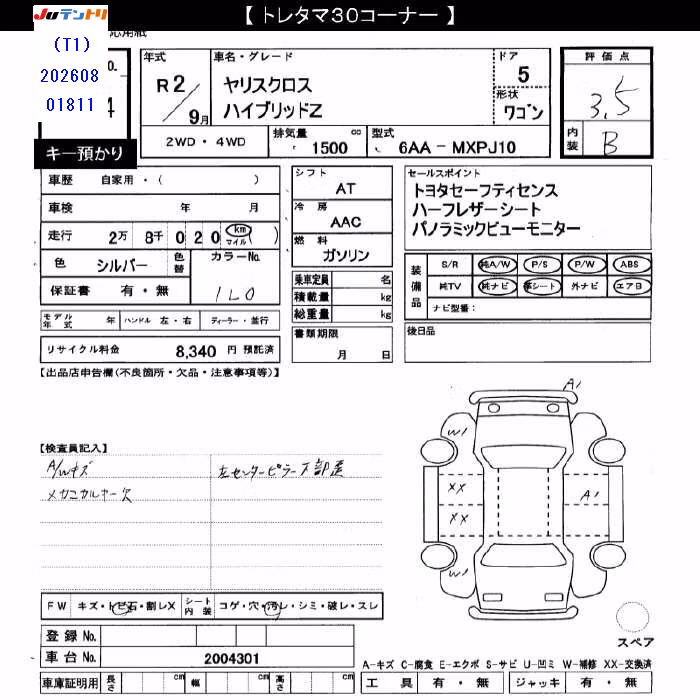 【 トレタマ30コーナー 】
JUテントリ
(T1)
202608
01811
応用紙
No.
4
キー預かり
年式
R 2/9月
車名・グレード
ヤリスクロス
ハイブリッドZ
ドア
5
形状
ワゴン
評価点
3.5
内装
B
2WD・4WD
排気量
1500 cc
型式
6AA-MXPJ10
車歴 自家用・( )
車検 年 月
走行 2万 8千 0 2 0 (km マイル)
色 シルバー
色替
カラーNo.
1L0
保証書 有・無
シフト
AT
冷房
AAC
燃料
ガソリン
セールスポイント
トヨタセーフティセンス
ハーフレザーシート
パノラミックビューモニター
乗車定員 名
積載量 kg
総重量 kg
装備品
S/R 純A/W P/S P/W ABS
純TV 純ナビ 革シート 外ナビ エアB
ナビ型番:
モデル年式 年 ハンドル 左・右 ディーラー・並行
書類期限
月 日
後日品
リサイクル料金 8,340 円 預託済
【出品店申告欄(不良箇所・欠品・注意事項等)】
【検査員記入】
A/Wキズ
メカニカルキー欠
左センターピラー下部歪
A1
W1
XX
A1
XX
W1
FW キズ・トビ石・割レX
シート内装 コゲ・穴・汚レ・シミ・破レ・スレ
登録No.
車台No. 2004301
スペア
A-キズ C-腐食 E-エクボ S-サビ U-凹ミ W-補修 XX-交換済
車庫証明用 長さ cm 幅 cm 高さ cm
工具 有・無 ジャッキ 有・無